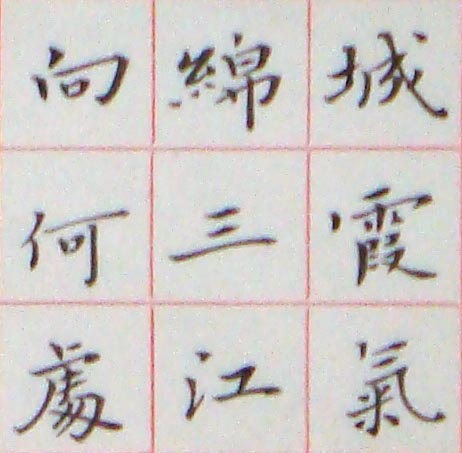 城霞氣
綿三江
向何處